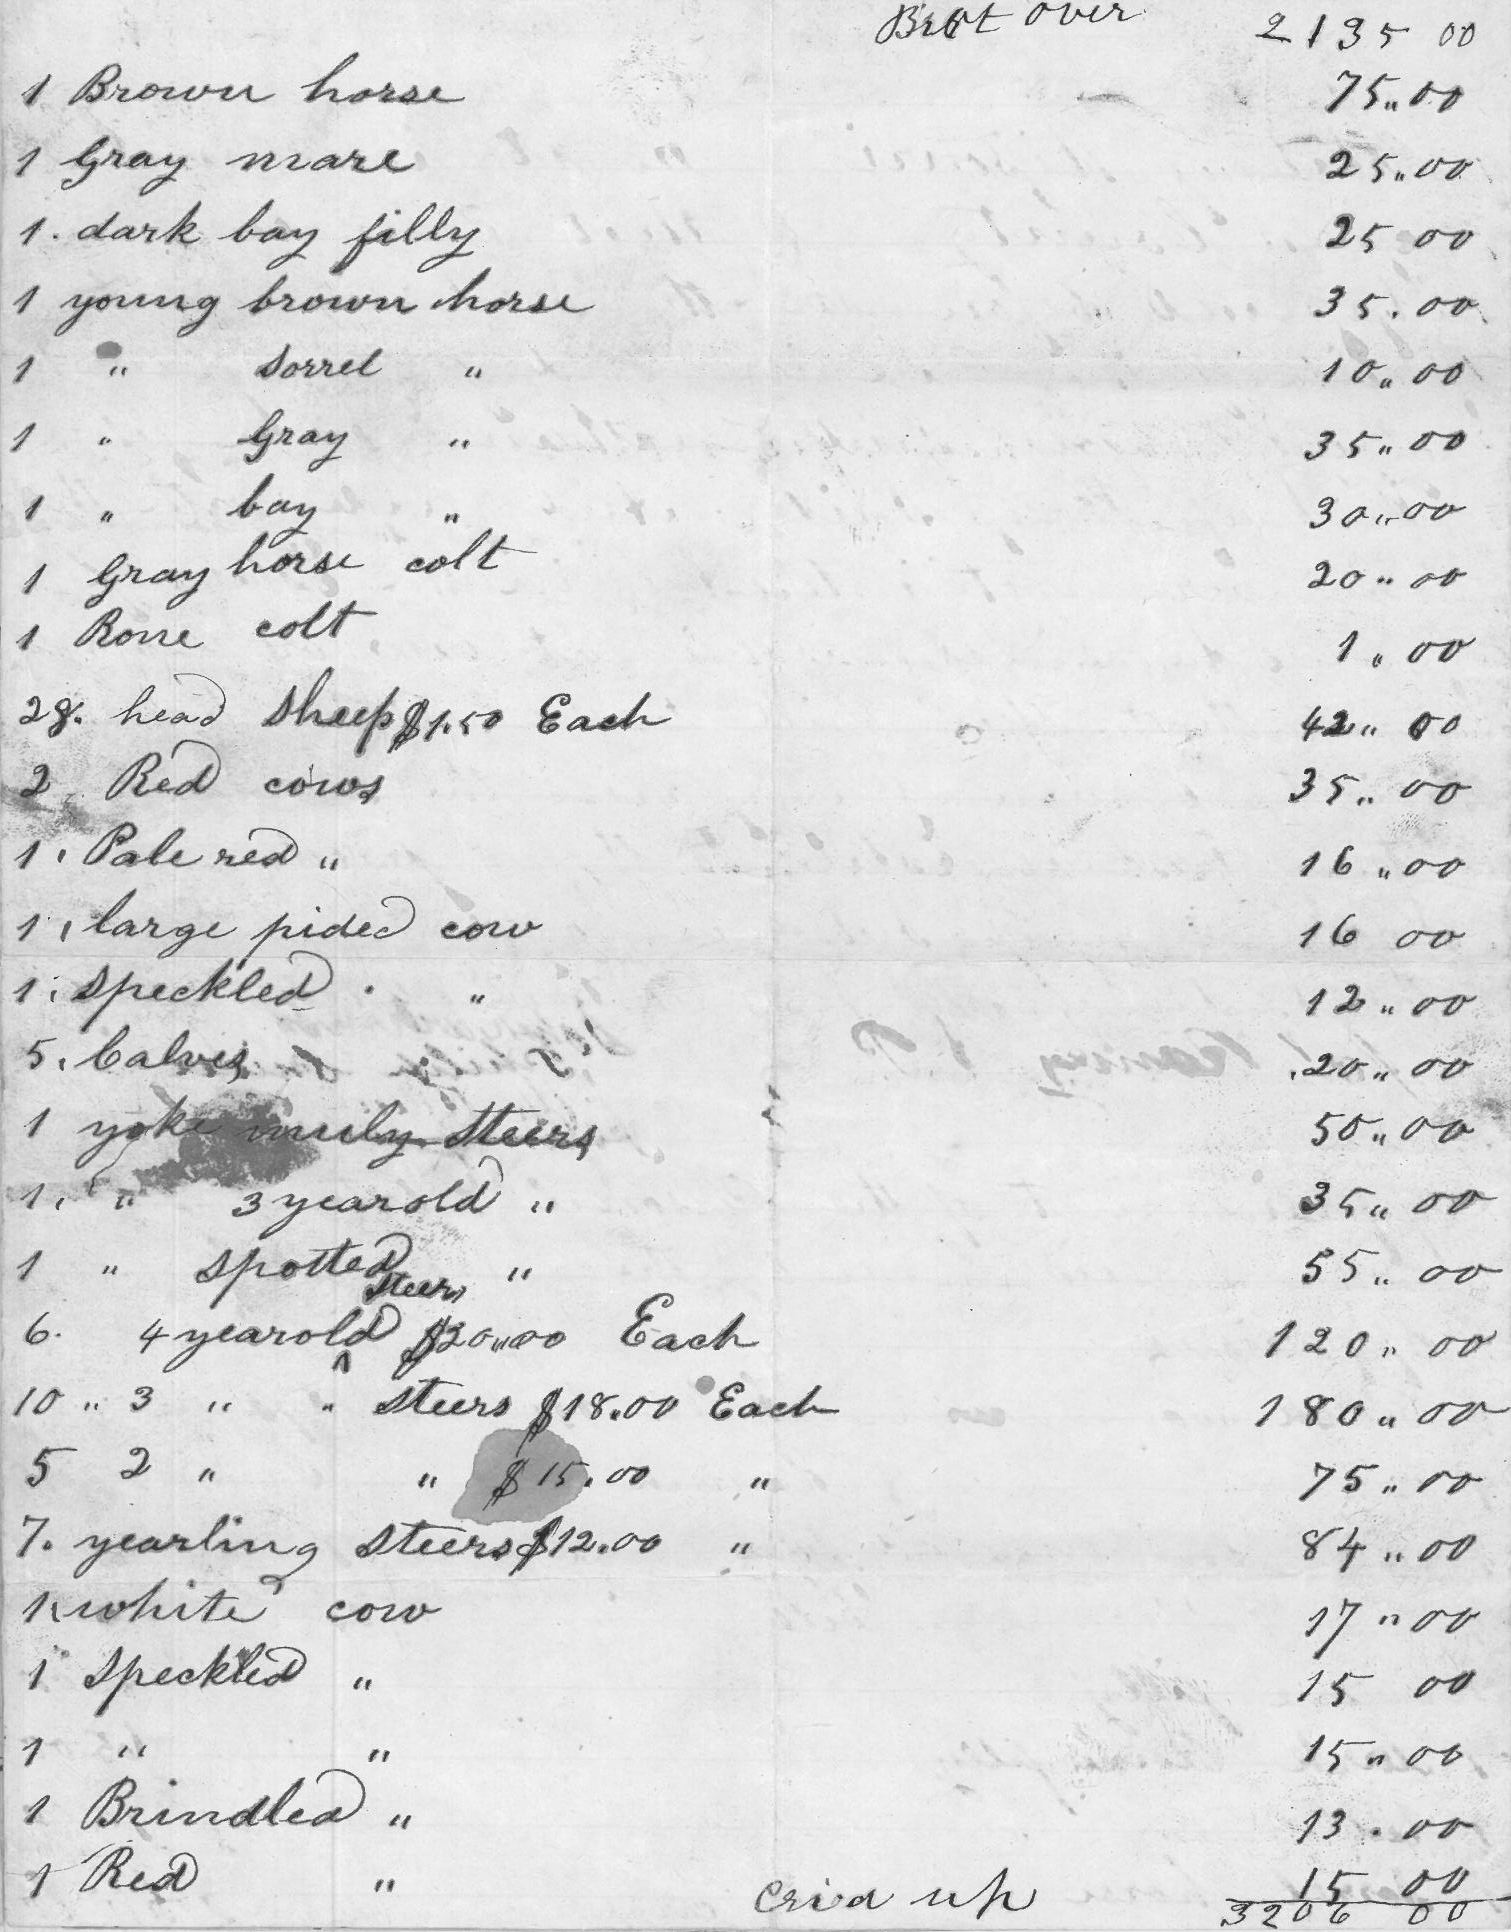 Brot over 2135 00
1 Brown horse 75.,00
1 Gray mare 25.,00
1. dark bay filly 25 00
1 young brown horse 35.00
1 " Sorrel " 10.,00
1 " Gray " 35.,00
1 " bay " 30.,00
1 Gray horse colt 20.,00
1 Rone colt 1.,00
28. head Sheep $1.50 Each 42.,00
2 Red cows 35.,00
1. Pale red " 16.,00
1. large pided cow 16 00
1. Speckled " 12.,00
5. Calves 20.,00
1 yoke muly Steers 50.,00
1. " 3 year old " 35.,00
1 " Spotted " 55.,00
6. 4 year old Steers $20.,00 Each 120.,00
10 " 3 " " Steers $18.00 Each 180.,00
5 2 " " $15.00 " 75.,00
7. yearling Steers $12.00 " 84.,00
1. white cow 17.,00
1 Speckled " 15 00
1 " " 15.,00
1 Brindled " 13.00
1 Red " 15 00
up 3206 00